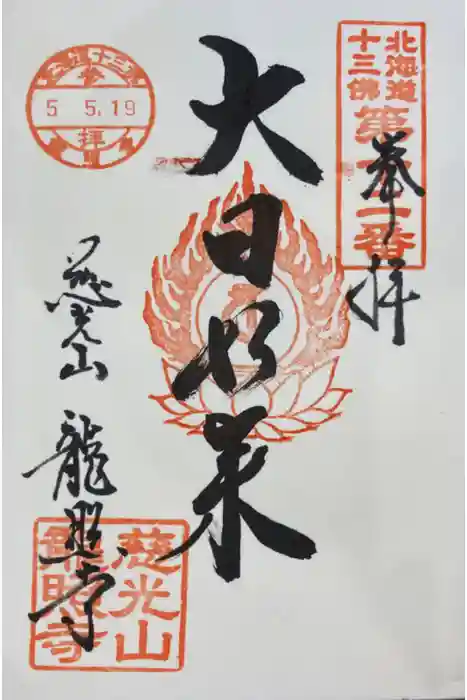 北海道
十三佛
第十二番
奉拝
大日如来
5 5.19
拝
慈光山
龍照寺
慈光山
龍照寺